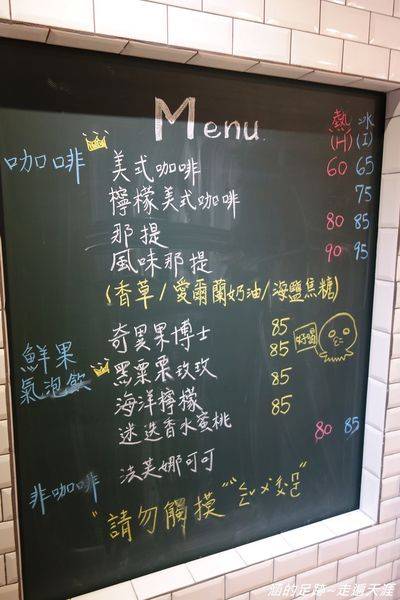 Menu
熱 冰
(H) (I)
咖啡 美式咖啡 60 65
檸檬美式咖啡 75
那提 80 85
風味那提 90 95
(香草/愛爾蘭奶油/海鹽焦糖)
鮮果
氣泡飲
奇異果博士 85
黑粟粟玫玫 85
海洋檸檬 85
迷迭香水蜜桃 85
好喝
非咖啡 法芙娜可可 80 85
"請勿觸摸"
涵的足跡~走遍天涯